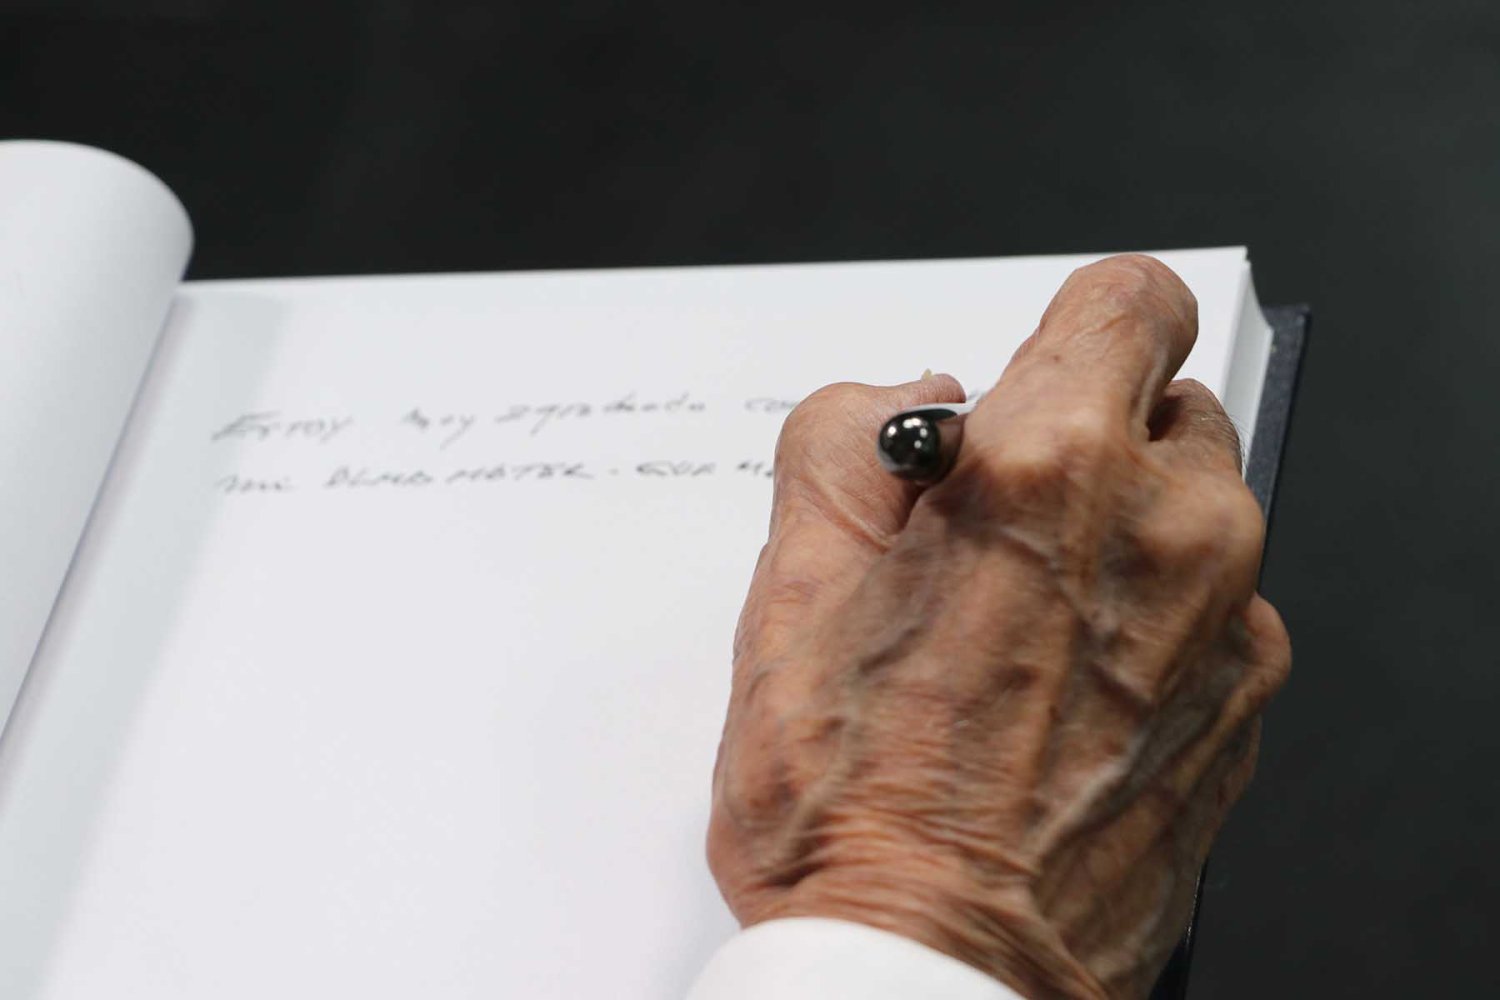 Estoy muy agradecido con
mi ALMA MATER - QUE ME